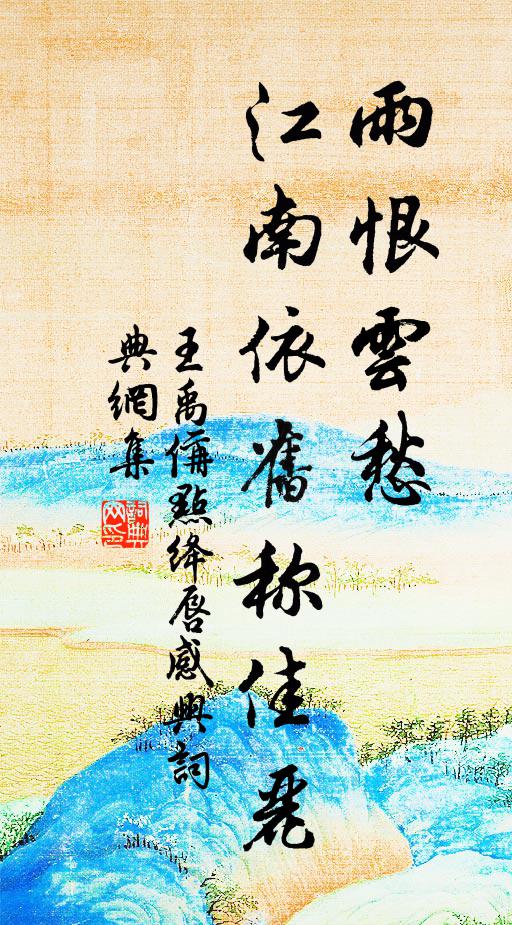 雨恨雲愁
江南依舊称佳麗
王禹偁點絳唇感興詞
典網集
詞典網印